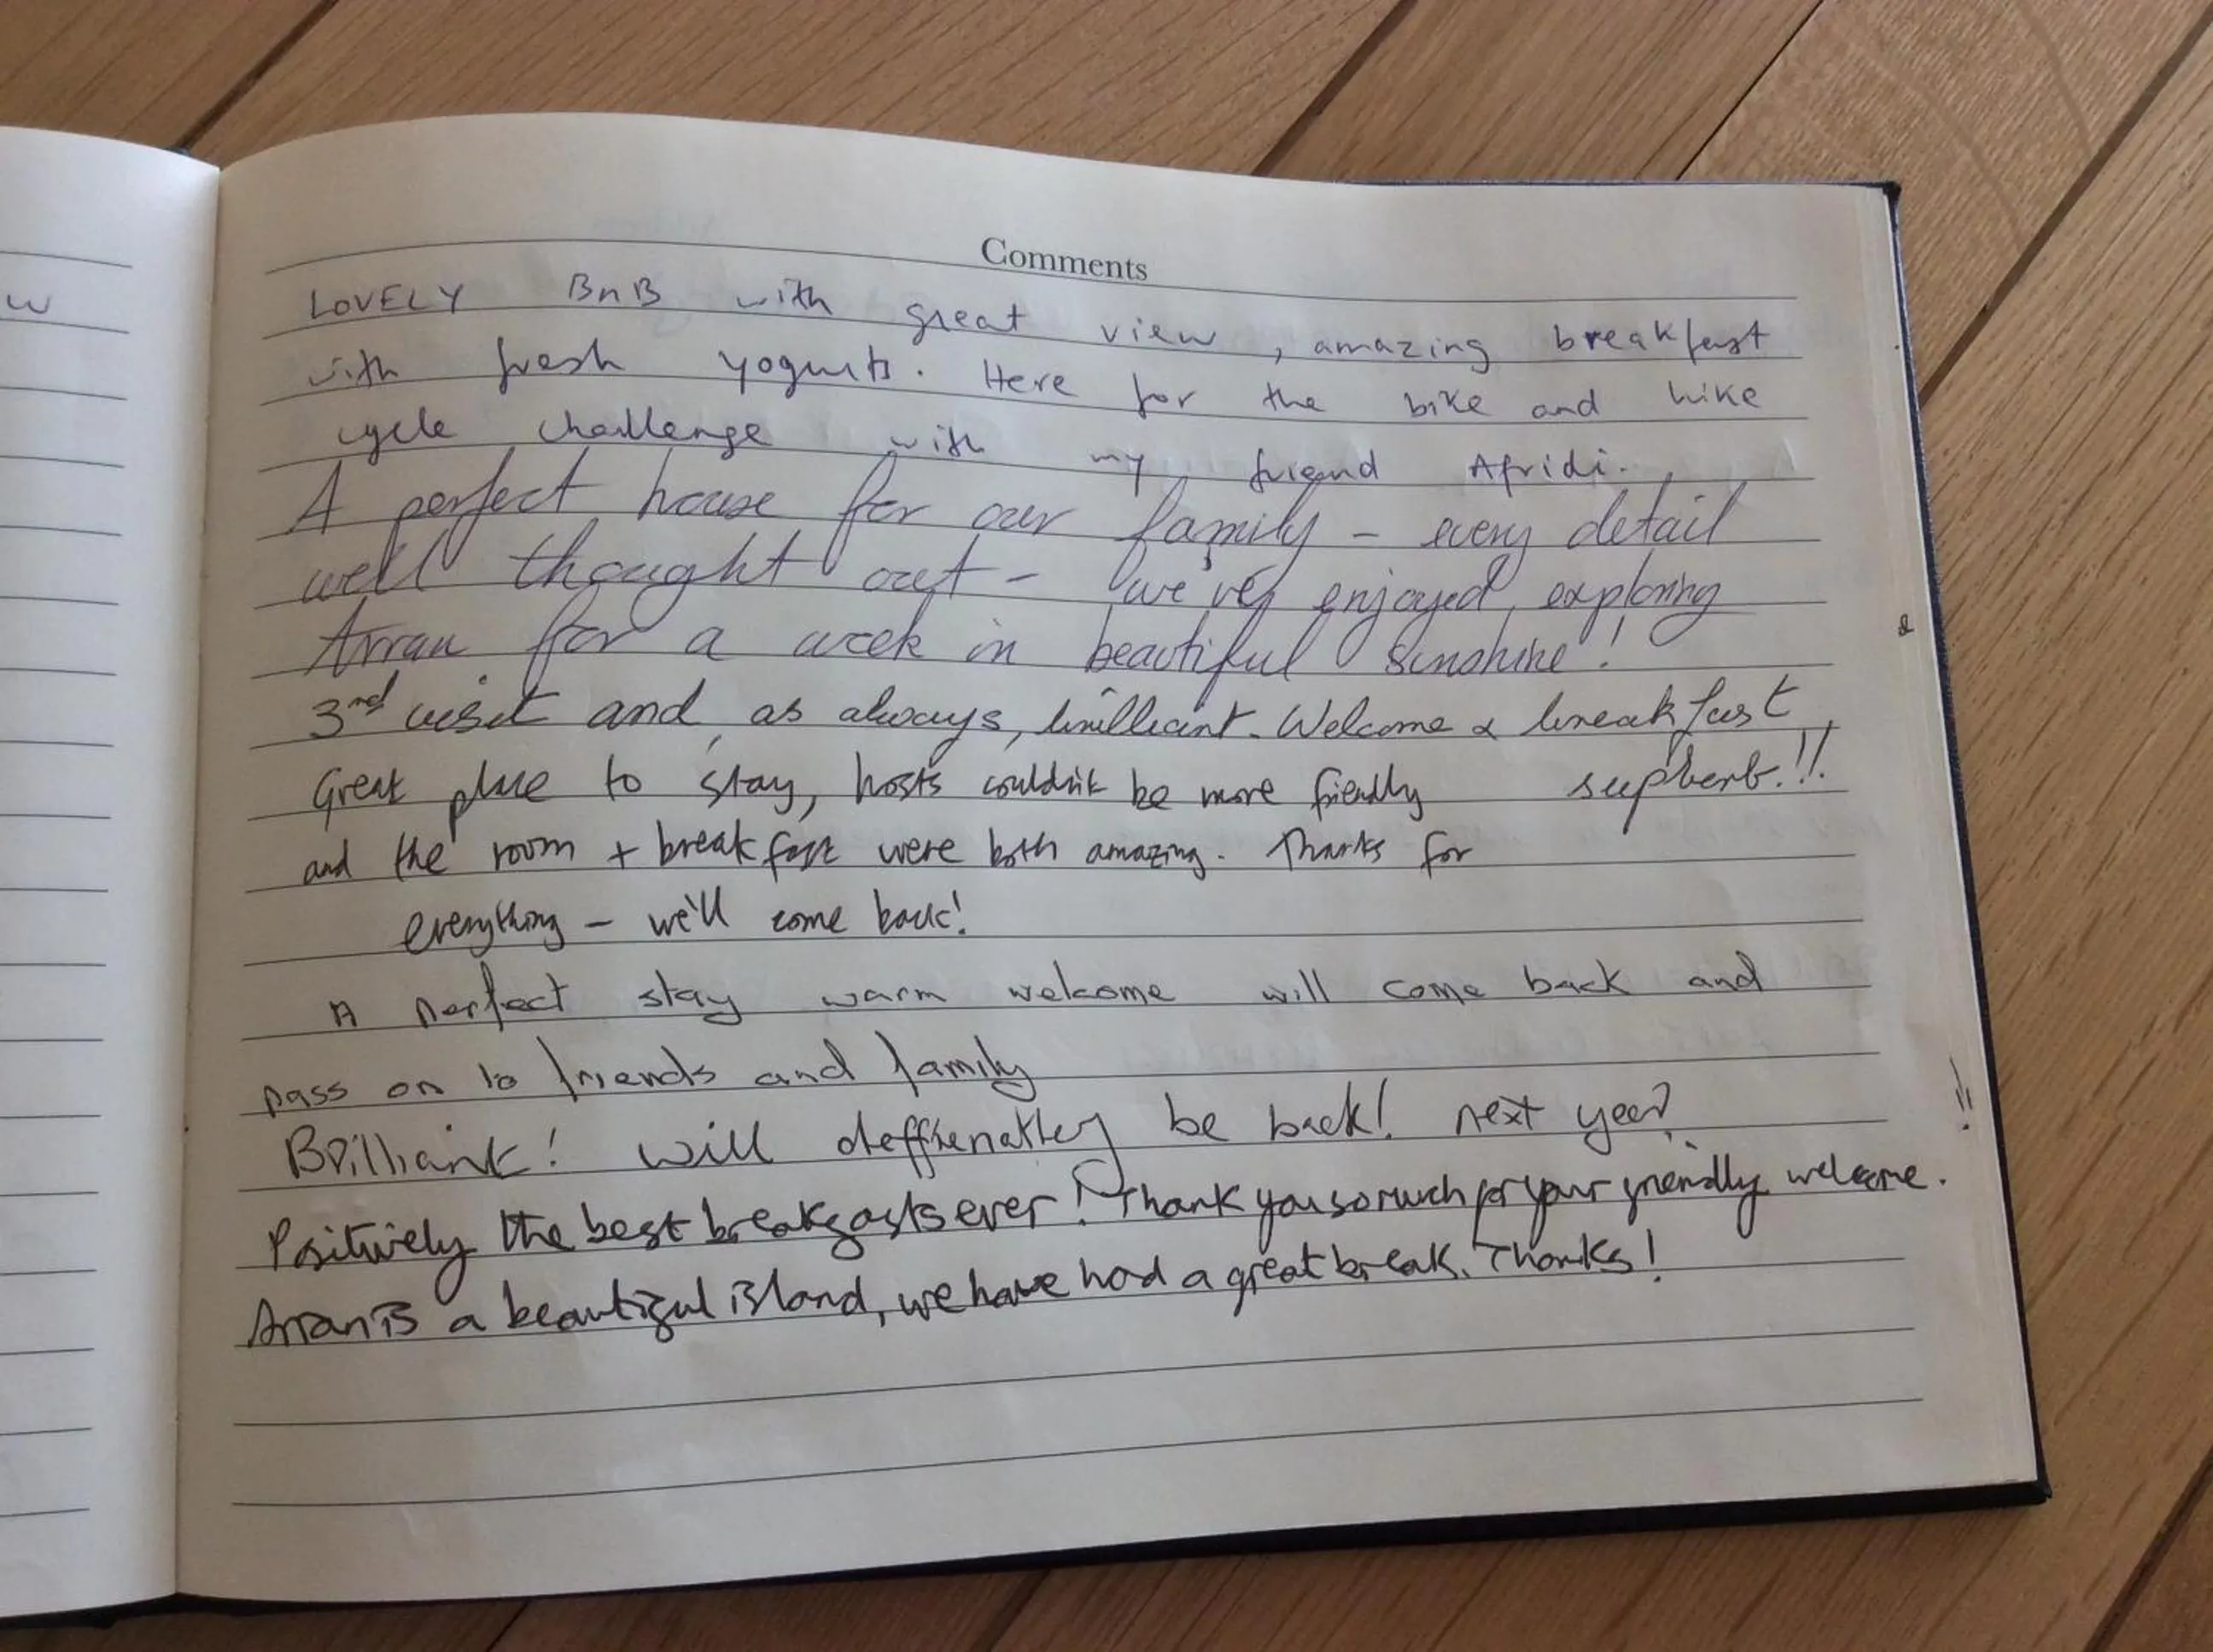 w
Comments
LOVELY BnB with great view, amazing breakfast
with fresh yogurts. Here for the bike and hike
cycle challenge with my friend Afridi.
A perfect house for our family - every detail
well thought out - we've enjoyed exploring
Arran for a week in beautiful sunshine!
3nd visit and, as always, brilliant. Welcome & breakfast
supberb.!!
Great place to stay, hosts couldn't be more friendly
and the room + breakfast were both amazing. Thanks for
everything - we'll come back!
A perfect stay warm welcome will come back and
pass on to friends and family
Brilliant! will deffienatley be back! next year?
Positively the best breakfasts ever! Thank you so much for your friendly welcome.
Arran is a beautiful island, we have had a great break. Thanks!